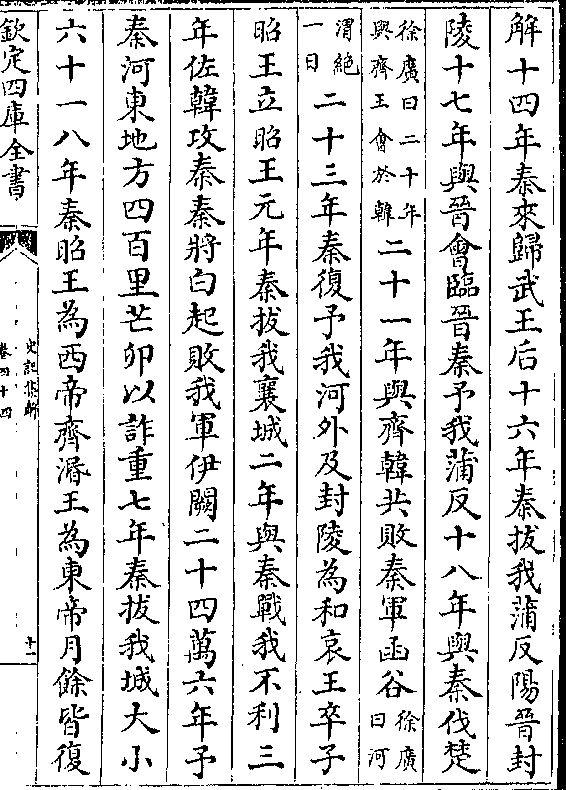 解十四年秦來歸武王后十六年秦拔我蒲反陽晉封
陵十七年與晉會臨晉秦予我蒲反十八年與秦伐楚
徐廣曰二十年
與齊王會於韓
二十一年與齊韓共敗秦軍函谷
徐廣
曰河
渭絕
一日
二十三年秦復予我河外及封陵為和哀王卒子
昭王立昭王元年秦拔我襄城二年與秦戰我不利三
年佐韓攻秦秦將白起敗我軍伊闕二十四萬六年予
秦河東地方四百里芒卯以詐重七年秦拔我城大小
六十一八年秦昭王為西帝齊湣王為東帝月餘皆復
欽定四庫全書
史記集解
卷四十四
十一